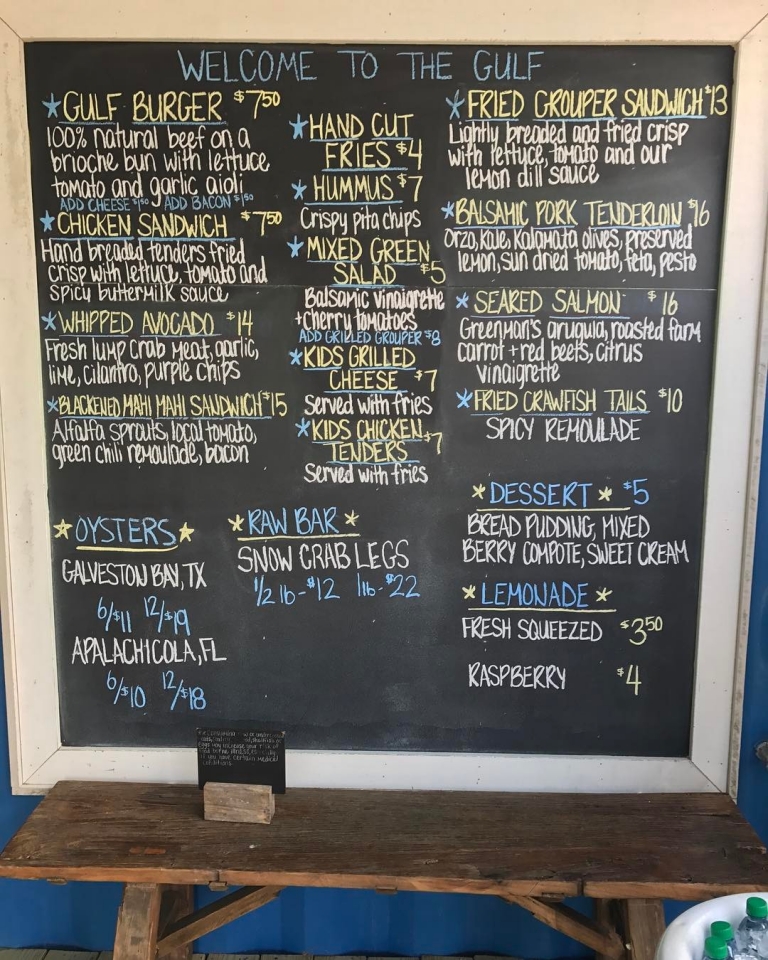 WELCOME TO THE GULF
*GULF BURGER $7.50
100% natural beef on a
brioche bun with lettuce
tomato and garlic aioli
ADD CHEESE $1.50 ADD BACON $1.50
*CHICKEN SANDWICH $7.50
Hand breaded tenders fried
crisp with lettuce, tomato and
spicy buttermilk sauce
*WHIPPED AVOCADO $14
Fresh lump crab meat, garlic,
lime, cilantro, purple chips
*BLACKENED MAHI MAHI SANDWICH $15
Alfalfa sprouts, local tomato,
green chili remoulade, bacon
*HAND CUT
FRIES $4
*HUMMUS $7
Crispy pita chips
*MIXED GREEN
SALAD $5
Balsamic vinaigrette
+cherry tomatoes
ADD GRILLED GROUPER $8
*KIDS GRILLED
CHEESE $7
Served with fries
*KIDS CHICKEN
TENDERS $7
Served with fries
*FRIED GROUPER SANDWICH $13
Lightly breaded and fried crisp
with lettuce, tomato and our
lemon dill sauce
*BALSAMIC PORK TENDERLOIN $16
Orzo, kale, kalamata olives, preserved
lemon, sun dried tomato, feta, pesto
*SEARED SALMON $16
Greenman's arugula, roasted farm
carrot + red beets, citrus
vinaigrette
*FRIED CRAWFISH TAILS $10
SPICY REMOULADE
*OYSTERS*
GALVESTON BAY, TX
6/$11 12/$19
APALACHICOLA, FL
6/$10 12/$18
*RAW BAR*
SNOW CRAB LEGS
1/2 lb-$12 1lb-$22
*DESSERT* $5
BREAD PUDDING, MIXED
BERRY COMPOTE, SWEET CREAM
*LEMONADE*
FRESH SQUEEZED $3.50
RASPBERRY $4
may increase your risk of
if you have certain medical
conditions